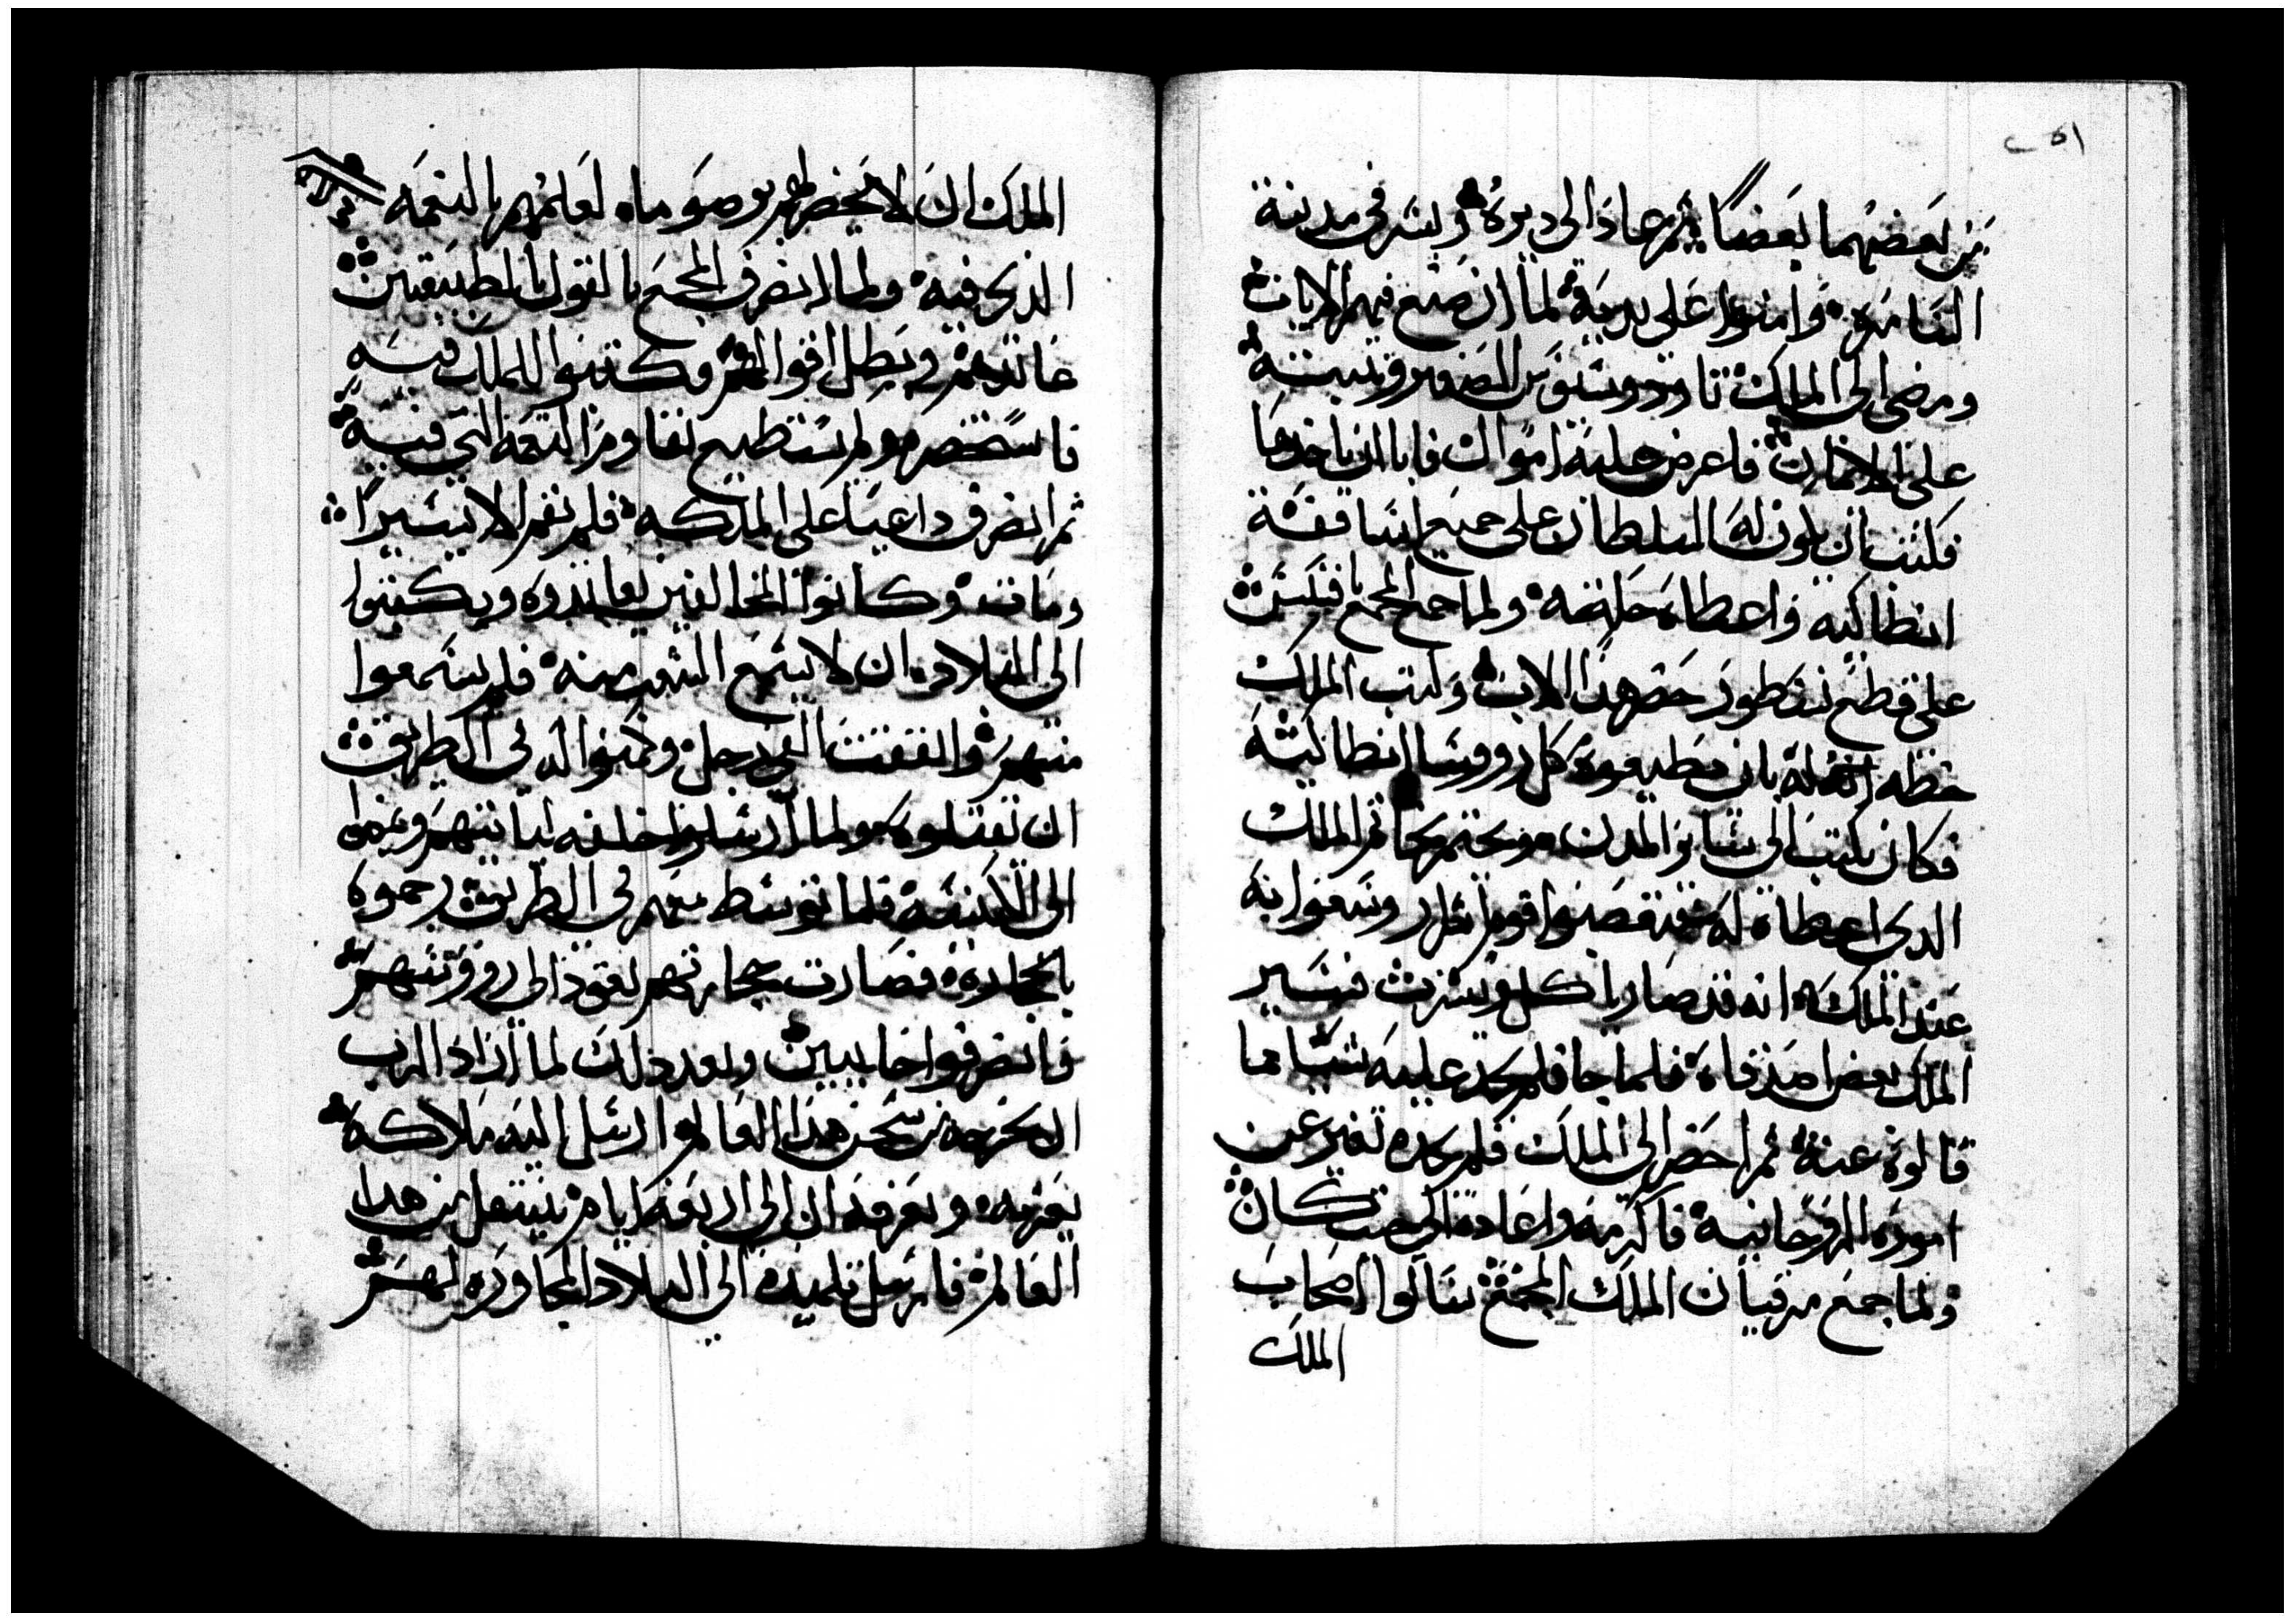 ٢٥١
من بعضهما بعضًا ثم عاد الى ديره وبشر في مدينة
السامره وامنوا على يديه لما ان صنع فيهم الايات
ومضى الى الملك تاودوسيوس الصغير وثبته
على الامانه فاعرض عليه اموال فابا ان ياخدها
فكتب ان يكون له السلطان على جميع اساقفة
انطاكيه واعطاه خاتمه ولما جمع المجمع بافسس
على قطع نسطور حضر هدا الاب وكتب الملك
خطه له بان يطيعوه كل رووسا انطاكية
فكان يكتب الى ساير المدن ويختم بخاتم الملك
الدى اعطاه له فتعصبوا قوم اشرار وسعوا به
عند الملك انه قد صار ياكل ويشرب فسير
الملك بعض فلما جا فلم يجد عليه شيا مما
قالوه عنه ثم احضر الى الملك فلم يجده تغير عن
اموره الروحانية فاكرمه واعاده الى حيث كان
ولما جمع مرقيان الملك المجمع سالوا اصحاب
الملك
الملك ان لا يحضر لعلمهم بالنعمه
الدى فيه ولما انصرف المجمع بالقول بالطبيعتين
عاندهم وبطل اقوالهم وكتبوا للملك فيه
فاستحضره ولم يستطيع تقاوم النعمه التي فيه
ثم انصرف داعيا على الملكه فلم تقم الا يسيرًا
وماتت وكانوا المخالفين يعاندوه ويكتبوا
الى البلاد ان لا يسمع الشعب منه فلم يسمعوا
منهم واتفقت الفي رجل وكمنوا له في الطريق
ان يقتلوه ولما ارسلوا خلفه لياتيهم وعزموا
الى الكنيسه فلما توسط بينهم في الطريق رجموه
بالحجاره فصارت حجارتهم تعود الى رووسهم
فانصرفوا خايبين وبعد دلك لما اراد الرب
ان يخرجه من سجن هدا العالم ارسل اليه ملاكه
يعزيه ويعرفه ان الى اربعة ايام ينتقل من هدا
العالم فارسل تلميده الى البلاد المجاوره لهم